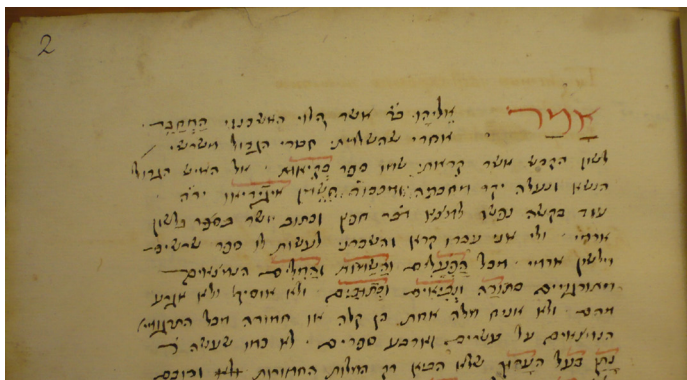 2
אָמַר אֵלִיָּהוּ בכ״ר אשר הלוי האשכנזי הַמְחַבֵּר .
אחרי שהשלמתי חבורי הגדול משרשי
לשון הקדש אשר קראתי שמו ספר אל האיש הגדול
הנשא ונעלה יקר מחכמה ומכבוד יר״ה
עוד בקשה נפשו למצא דבר חפץ וכתוב יושר בספר בלשון
ארמי . ולי אני עבדו קרא והשכרני לעשות לו ספר שרשים
מלשון ארמי . מכל הַפְּעָלִים וְהַשֵּׁמוֹת וְהַמִּלִּים הנמצאים
מתורגמים בתוֹרָה וּנְבִיאִים וּכְתוּבִים . ולא אוסיף ולא אגרע
מהם . ולא אניח מלה אחת הן קלה או חמורה מכל התרגומי׳
הנמצאים על עשרים וארבע ספרים . לא כמו שעשה ר׳
נָתָן בַּעַל הֶעָרוּךְ שלא הביא רק המלות החמורות ורובם